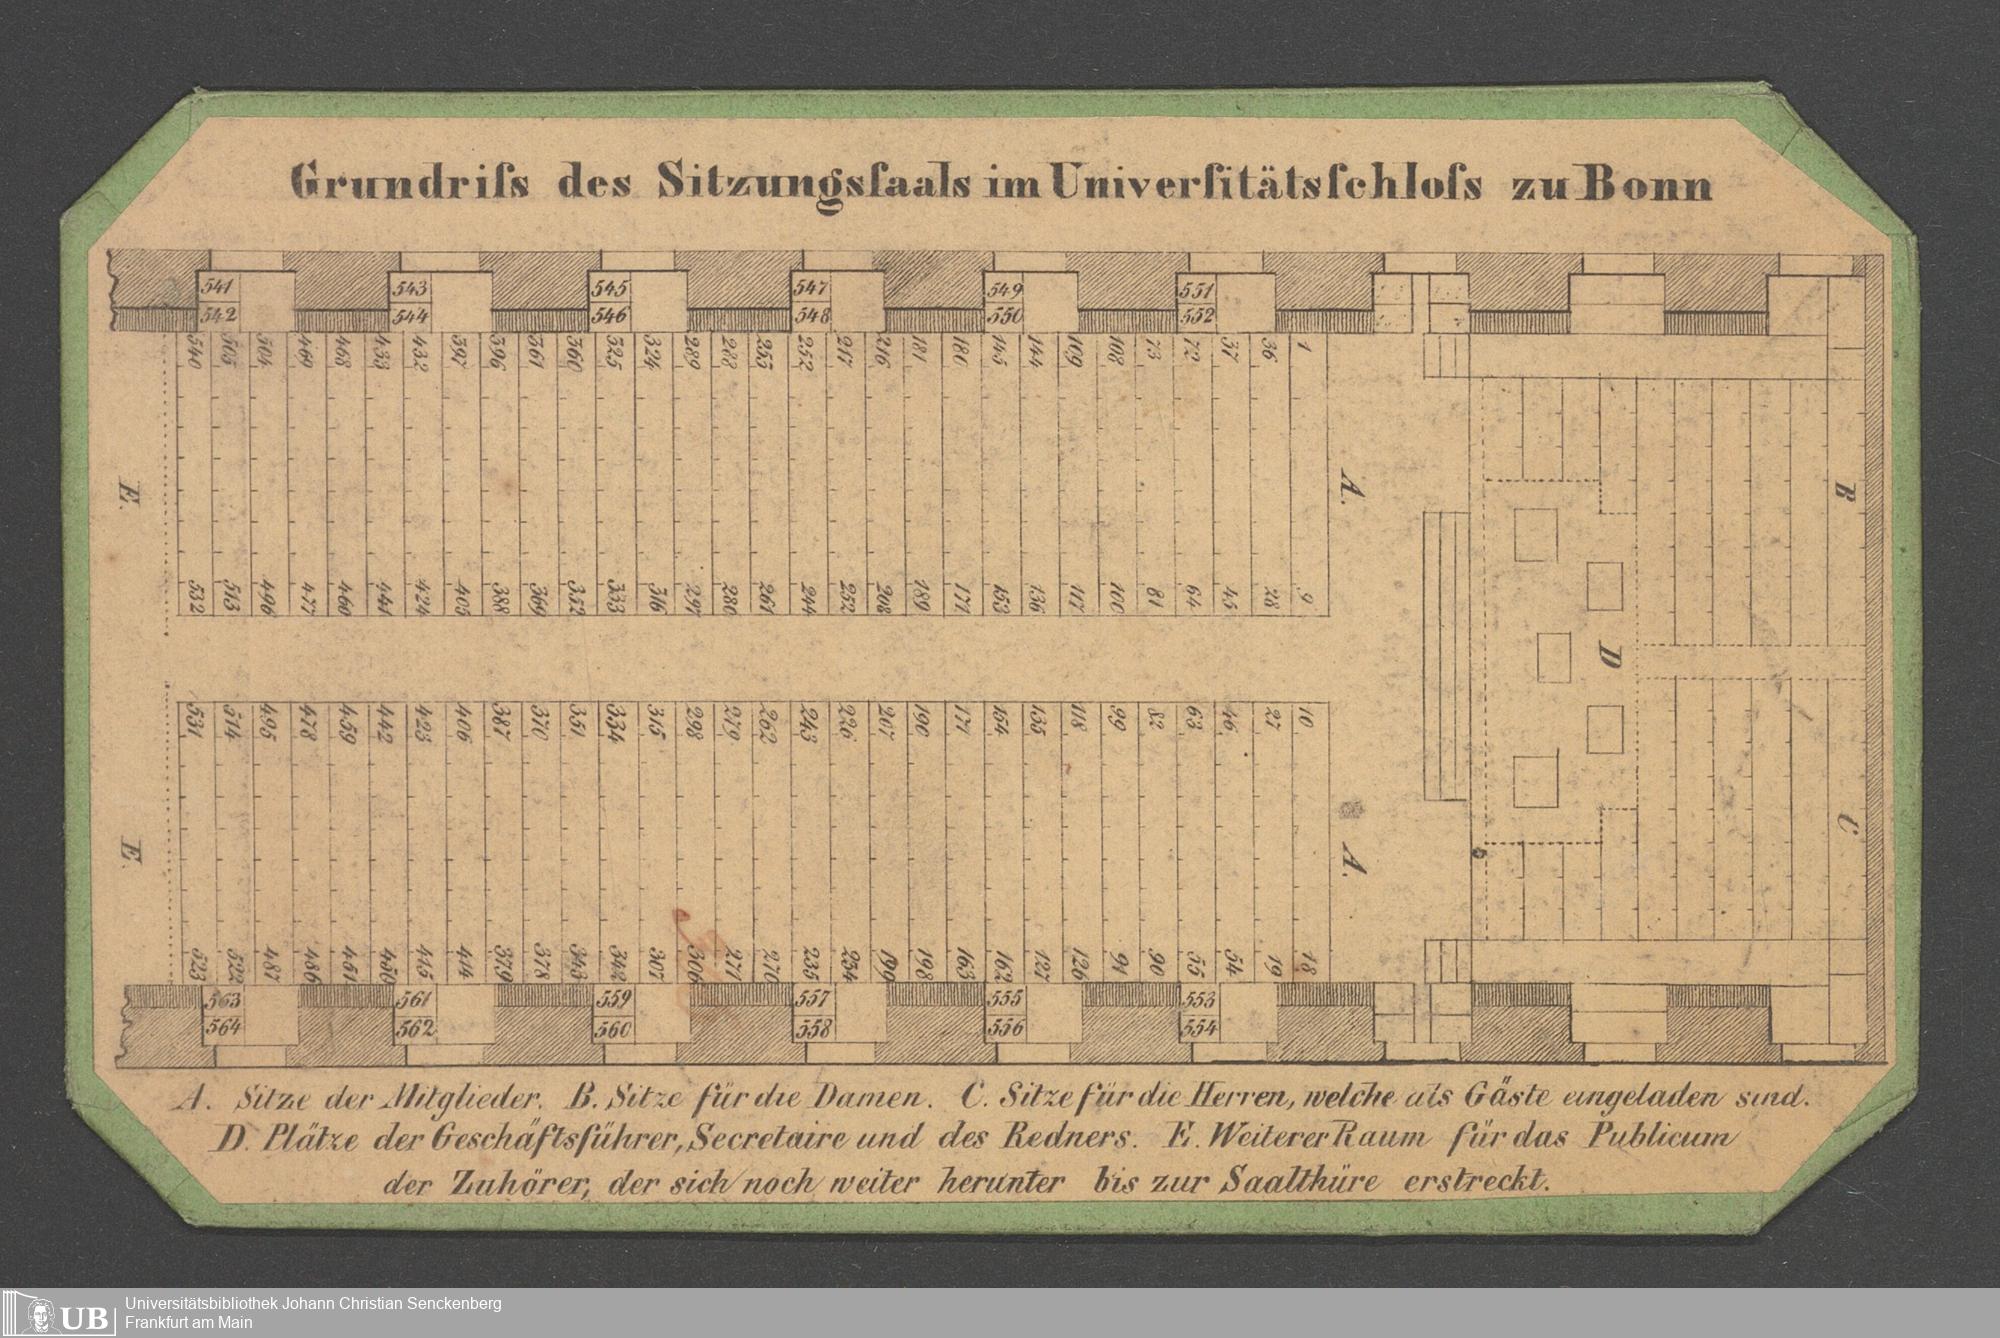 Grundriſs des Sitzungsſaals im Univerſitätsſchloſs zu Bonn
541 543 545 547 549 551
542 544 546 548 550 552
540 505 504 469 468 433 432 397 396 361 360 325 324 289 288 253 252 217 216 181 180 145 144 109 108 73 72 37 36 1
E. A. B
532 513 496 477 460 441 424 405 388 369 352 333 316 297 280 261 244 252 208 189 171 153 136 117 100 81 64 45 28 9
D
531 514 495 478 459 442 423 406 387 370 351 334 315 298 279 262 243 226 207 190 171 154 135 118 99 82 63 46 27 10
E. A. C
523 522 487 486 451 450 415 414 379 378 343 342 307 306 271 270 235 234 199 198 163 162 127 126 91 90 55 54 19 18
563 561 559 557 555 553
564 562 560 558 556 554
A. Sitze der Mitglieder. B. Sitze für die Damen. C. Sitze für die Herren, welche als Gäste eingeladen sind.
D. Plätze der Geschäftsführer, Secretaire und des Redners. E. Weiterer Raum für das Publicum
der Zuhörer, der sich noch weiter herunter bis zur Saalthüre erstreckt.
UB Universitätsbibliothek Johann Christian Senckenberg
Frankfurt am Main